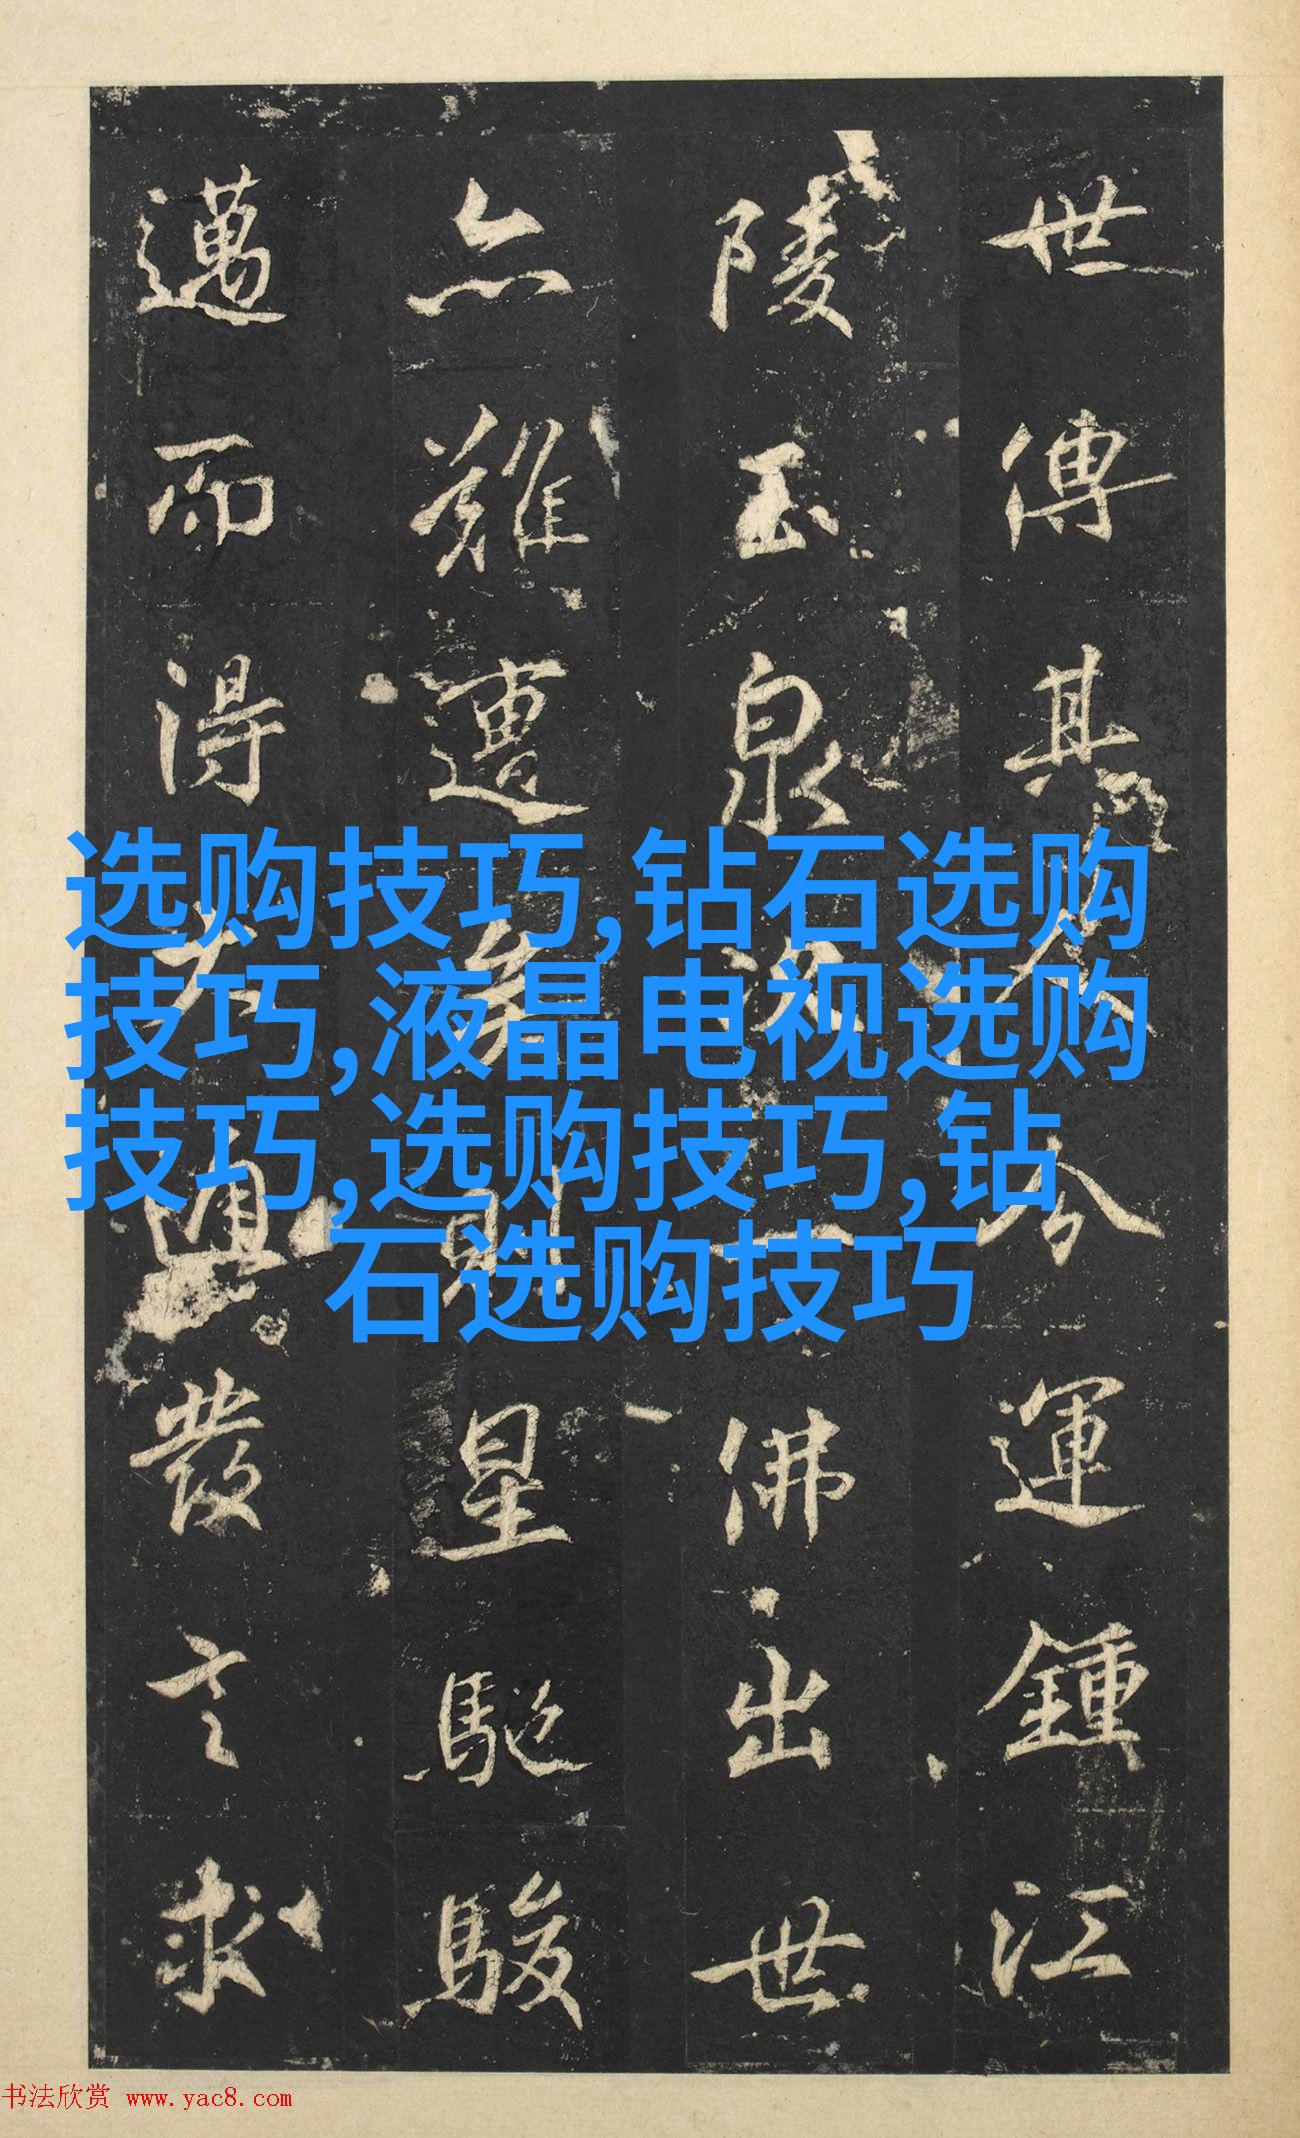 世傳其人今運鍾江
陵玉泉次一佛出世
亦難遭矣則星馳駿
邁而得大興發之求
选购技巧,钻石选购
技巧,液晶电视选购
技巧,选购技巧,钻
石选购技巧
书法欣赏 www.yac8.com